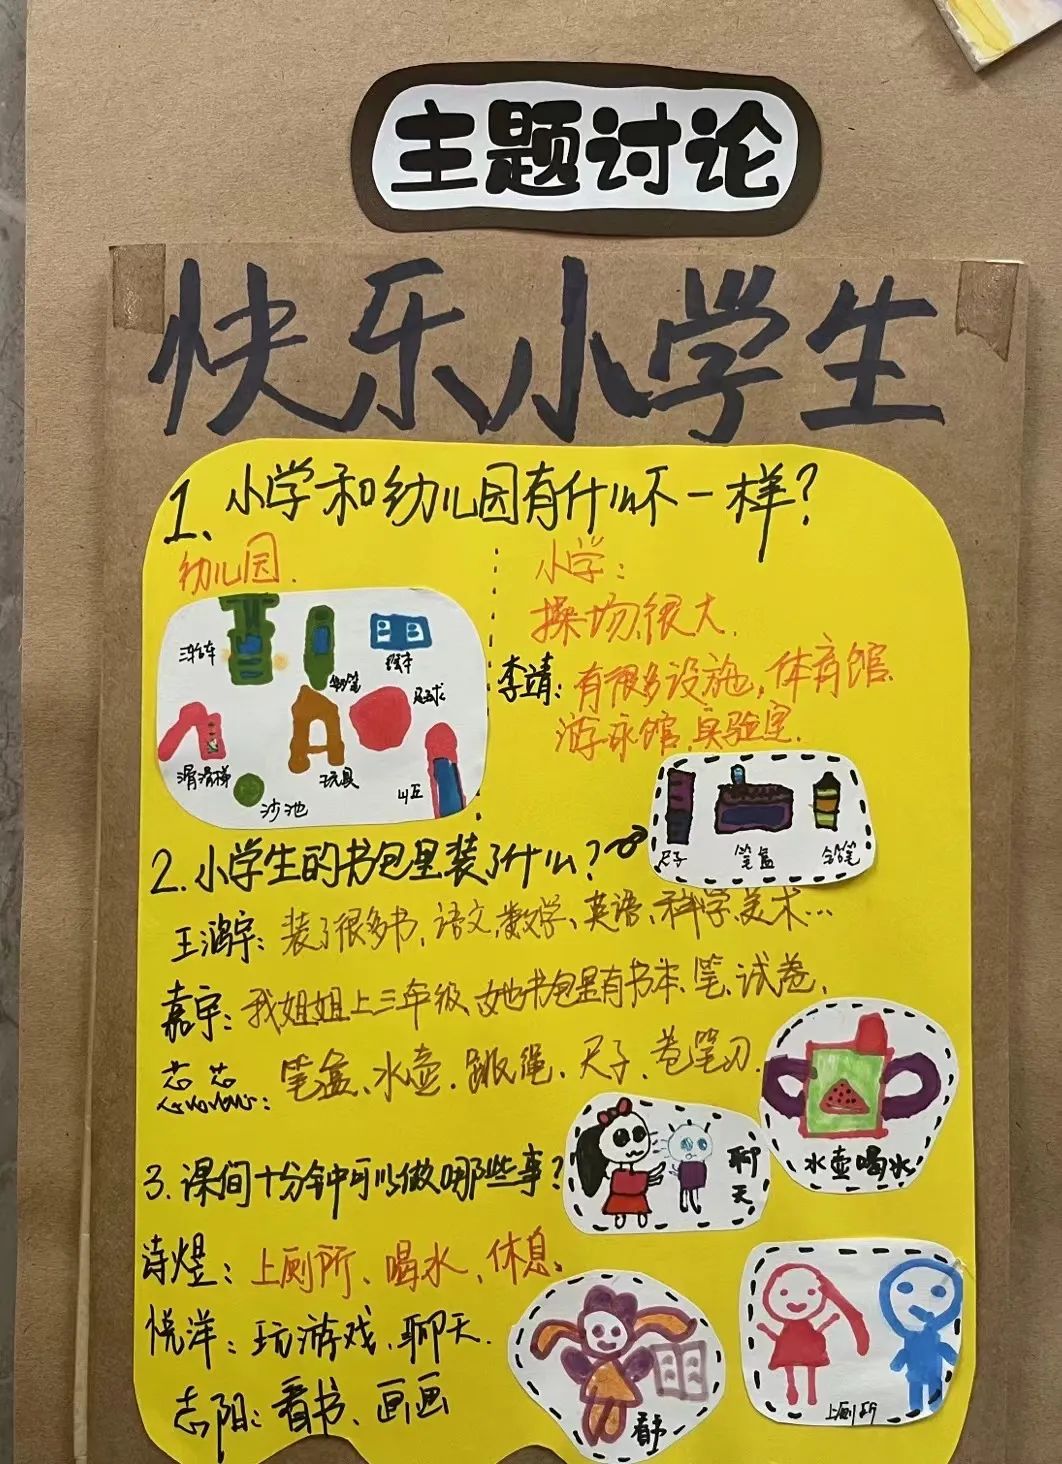 主题讨论
快乐小学生
1、小学和幼儿园有什么不一样？
幼儿园.
滑滑梯
沙池
玩具
绘本
小学：
操场很大.
李靖：有很多设施，体育馆
游泳馆、实验室.
2.小学生的书包里装了什么？
尺子
笔盒
铅笔
王鸿宇：装了很多书、语文、数学、英语、科学、美术…
嘉宇：我姐姐上三年级、她书包里有书本、笔、试卷.
芯芯：笔盒、水壶、跳绳、尺子、卷笔刀
水壶喝水
3.课间十分钟可以做哪些事？
聊天
诗煜：上厕所、喝水、休息
悦洋：玩游戏、聊天.
志阳：看书、画画
看书
上厕所